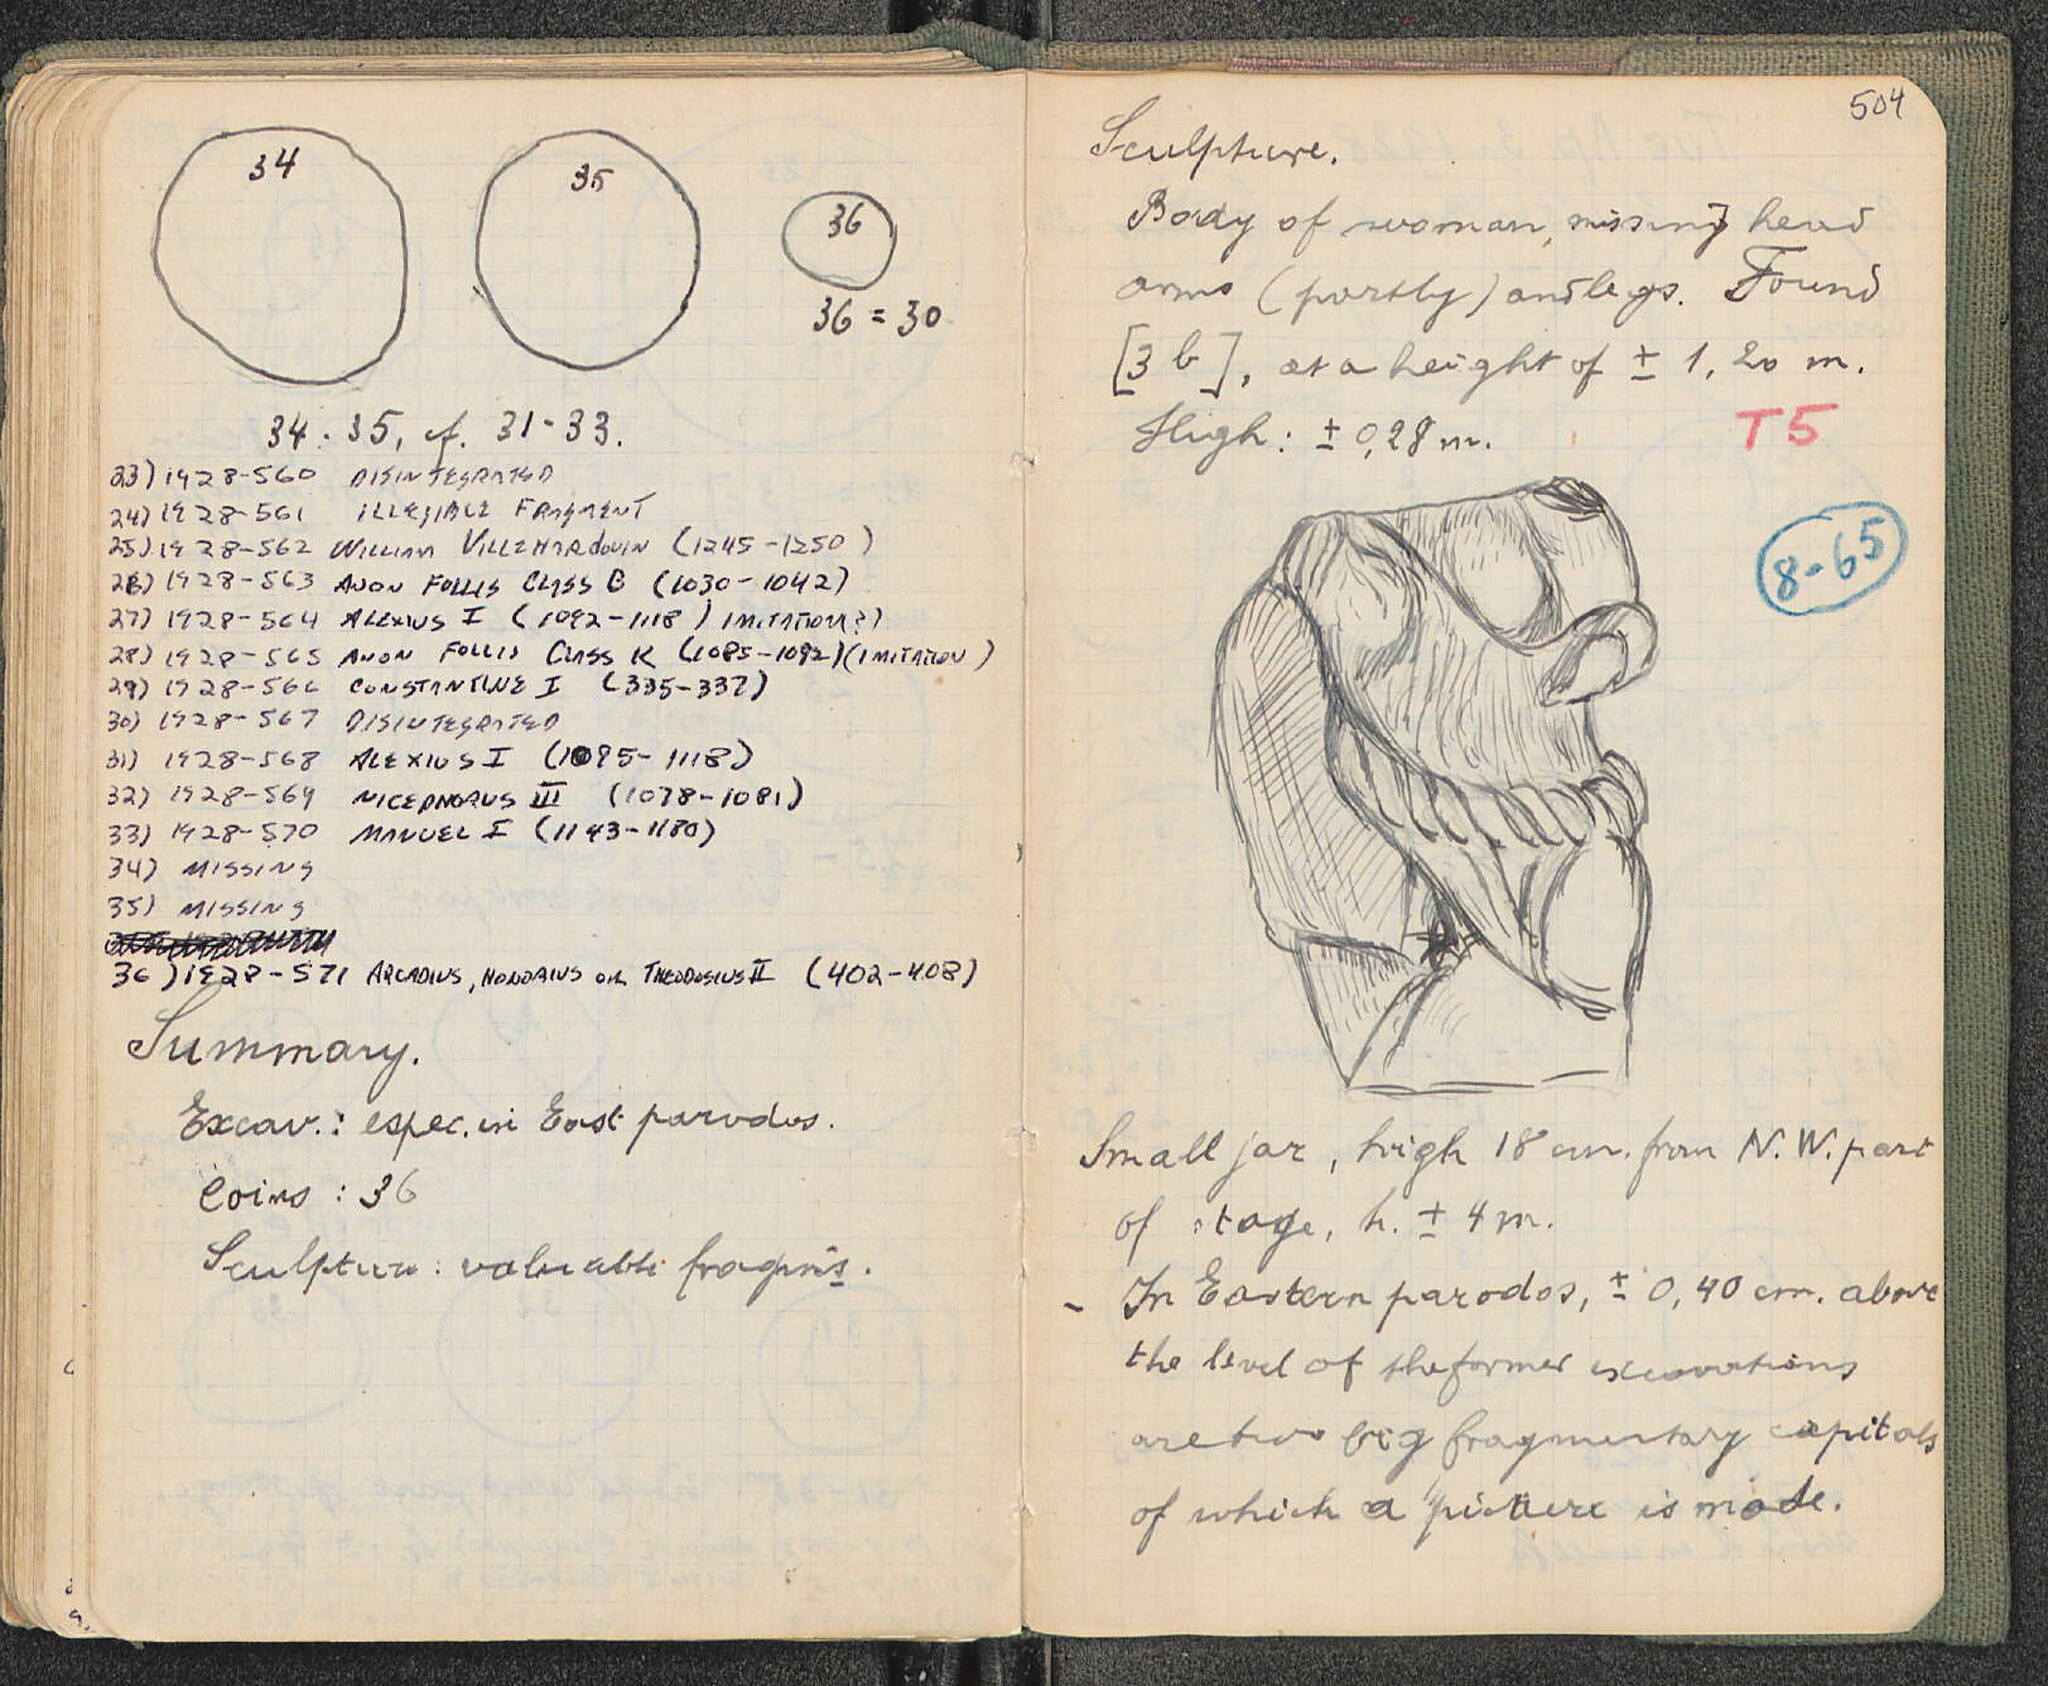 34
35
36
36 = 30
34 - 35, cf. 31-33.
23) 1928-560 DISINTEGRATED
24) 1928-561 ILLEGIBLE FRAGMENT
25) 1928-562 WILLIAM VILLEHARDOUIN (1245-1250)
26) 1928-563 ANON FOLLIS CLASS B (1030-1042)
27) 1928-564 ALEXIUS I (1092-1118) IMITATION(?)
28) 1928-565 ANON FOLLIS CLASS K (1085-1092) (IMITATION)
29) 1928-566 CONSTANTINE I (335-337)
30) 1928-567 DISINTEGRATED
31) 1928-568 ALEXIUS I (1095-1118)
32) 1928-569 NICEPHORUS III (1078-1081)
33) 1928-570 MANUEL I (1143-1180)
34) MISSING
35) MISSING
36) 1928-571 ARCADIUS, HONORIUS OR THEODOSIUS II (402-408)
Summary.
Excav.: espec. in East parodos.
Coins : 36
Sculpture: valuable fragm̅s̲.
504
Sculpture.
Body of woman, missing head
arms (partly) and legs. Found
[3 b], at a height of ± 1,20 m.
High: ± 0,28 m.
T5
8-65
Small jar, high 18 cm. from N.W. part
of stage, h. ± 4 m.
- In Eastern parodos, ± 0,40 cm. above
the level of the former excavations
are two big fragmentary capitals
of which a picture is made.